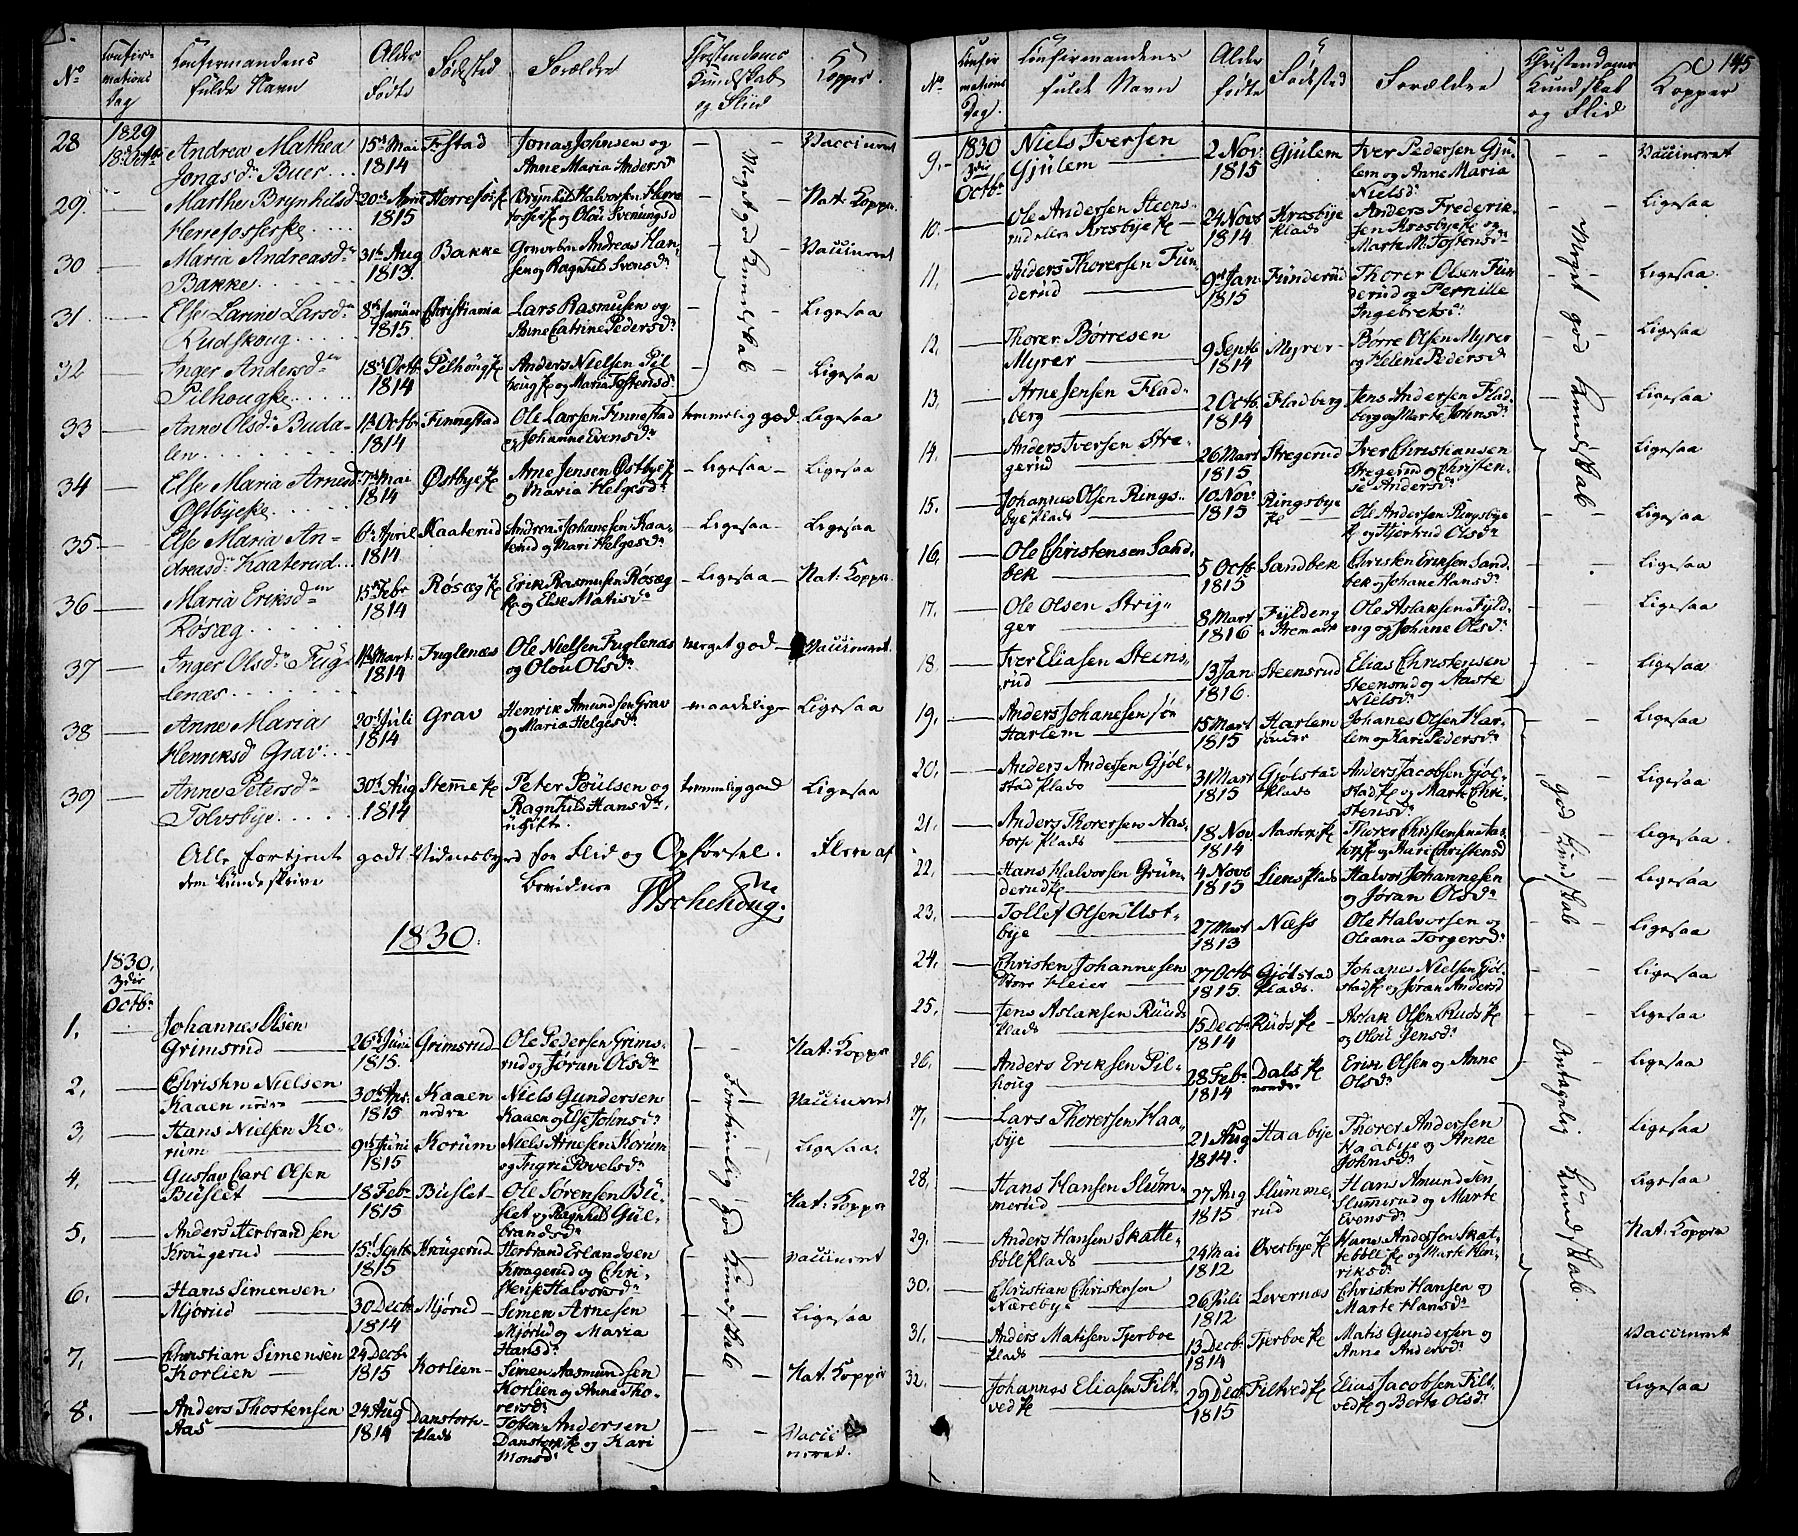 No
Confir-
mations
dag
Confirmandens
fulde Navn
Alder
Fødte
Fødested
Forældre
Christendoms
Kundskab
og Fliid
Kopper.
1829
28 18de Octb. Andrea Mathea
Jonasdr Buer
15de Mai
1814
Festad
Jonas Johnsen og
Anne Maria Andersdr
Vaccineret
29. Marthe Brynhildsd
Herrefosseske
1815
Brynhild Halvorsen Herre
Nat: Kopper.
Meget god Kundskab
30 Maria Andreasdr
Bakke
31te Aug
1813.
Bakke
Andreas Han-
sen og Ragnhild Svensdr
Vaccineret
31. Else Larine Larsdr
Rudskoug
8de Januar
1815.
Christiania
Lars Rasmusen og
Anne Catrine Pedersdr
Ligesaa
32 Inger Andersdr
Pilhougke
18de Octb.
1814
Pilhougke
Anders Nielsen Pil
houg ke og Maria Tostensdr
Ligesaa
33 Anne Olsdr Buda-
len
Octbr
1814
Finnestad
Ole Larsen Finnestad
og Johanne Evensdr
temmelig god
Ligesaa
34 Else Maria Arnesd
Østbyeke
7de Mai
1814
Østbye ke
Arne Jensen Østbye ke
og Maria Helgesdr
Ligesaa
Ligesaa
35 Else Maria An-
dreasdr Kaaterud
6te April
1814
Kaaterud
Andreas Johanesen Kaa-
terud og Mari Helgesdr
Ligesaa
Ligesaa
36 Maria Eriksdr
Røsæg
15de Febr
1814
Røsæg ke
Erik Rasmusen Røsæg
ke og Else Matisdr
Ligesaa
Nat: Kopper
37 Inger Olsdr Fug-
lenæs
Mart.
1814
Fuglenæs
Ole Nielsen Fuglenæs
og Olou Olsdr
meget god
Vaccineret
38 Anne Maria
Henriksd Grav
20de Juli
1814
Grav
Henrik Amundsen Grav
og Maria Helgesdr
maadelig
Ligesaa
39 Anne Petersdr
Tolvsbye
30de Aug
1814
Stemme ke
Peter Poulsen og
Ragnhild Hansdr
ugifte.
temmelig god
Ligesaa
Alle fortjent godt Vidnesbyrd for Flid og Opførsel. Flere af
dem kunde skrive
1830.
1830.
3die
Octbr
1. Johannes Olsen
Grimsrud
26de Juni
1815.
Grimsrud
Ole Pedersen Grims-
rud og Jøran Olsdr
Nat: Kopper
2, Christen Nielsen
Kaaen nedre
30de Apr.
1815
Kaaen
nedre
Niels Gundersen
Kaaen og Else Johnsdr
Vaccineret
3, Hans Nielsen Ko-
rum
9de Juni
1815
Korum
Niels Arnesen Korum
og Ingri Povelsdr
Ligesaa.
4, Gustav Carl Olsen
Buslet
18 Febr
1815
Buslet
Ole Sørensen Bu-
slet og Ragnhild Gul-
brandsdr
Nat: Kopper
Fortrinlig god Kundskab
5, Anders Herbrandsen
Krougerud
15de Septb
1815
Krougerud
Herbrand Erlandsen
Krogerud og Chri-
stense Halvorsdr
Vaccineret
6, Hans Simensen
Mjørud
30 Decb
1814
Mjørud
Simen Arnesen
Mjørud og Maria
Hansdr
Ligesaa
7, Christian Simensen
Korlien
24 Decbr
1815
Korlien
Simen Aasmundsen
Korlien og Anne Tho-
rersdr
Nat. Kopper
8. Anders Thostensen
Aas
24 Aug
1814
Danstorke-
plads
Tosten Andersen
Danstorp ke og Kari
Monsdr
Vacci-
neret.
145
No
Confir
mations
Dag.
Confirmandens
fulde Navn
Alder
fødte
Fødested
Forældre
Christendoms
Kundskab
og Flid
Kopper
9. 1830
3die
Octbr
Niels Iversen
Gjulem
2 Nov.
1815
Gjulem
Iver Pedersen Gju-
lem og Anne Maria
Nielsdr
Vaccineret
10. Ole Andersen Steens-
rud eller Krosbye ke
24 Novb
1814
Krosbye
plads
Anders Frederik-
sen Krosbye ke og
Marte M. Tostensdr
Ligesaa
11, Anders Thorersen Fun-
derud
9de Jan.
1815
Funderud
Thorer Olsen Fun-
derud og Pernille
Ingebretsdr
Ligesaa.
12. Thorer Børresen
Myrer
9 Septb
1814
Myrer
Børre Olsen Myrer
og Helene Pedersdr
Ligesaa
Meget god Kundskab
13, Arne Jensen Flad-
berg
2 Octb.
1814
Fladberg
Jens Andersen Flad-
berg og Marte Johnsdr
Ligesaa
14. Anders Iversen Stre-
gerud
26 Mart
1815
Stregerud
Iver Christiansen
Stregerud og Christen-
se Andersdr
Ligesaa
15. Johannes Olsen Rings-
bye plads
10 Nov.
1815
Ringsbye
ke
Ole Andersen Ringsbye
ke og Hjertrud Olsdr
Ligesaa
16. Ole Christensen Sand-
bek
5 Octb.
1815
Sandbek
Christen Eriksen Sand-
bek og Johane Hansdr
Ligesaa
17. Ole Olsen Stry-
ger
8 Mart
1816
Fylding
i Aremark
Ole Aslaksen Fyld-
eng og Johane Olsdr
Ligesaa
18. Iver Eliasen Steens-
rud
13 Jan
1816.
Steensrud
Elias Christensen
Steensrud og Aaste
Nielsdr
Ligesaa
19. Anders Johanesen søn
Harlem
15 Mart
1815
Harlem
søndre
Johanes Olsen Har-
lem og Kari Pedersdr
Ligesaa
20. Anders Andersen Gjøl-
stad plads
31 Mart
1815
Gjølstad
plads
Anders Jacobsen Gjøl-
stad ke og Marte Chri-
stensdr
Ligesaa
god Kundskab
21. Anders Thorersen Aas-
torp plads
18 Nov.
1814
Aastorp ke
Thorer Christensen Aas-
torp ke og Kari Christensd
Ligesaa
22. Hans Halvorsen Grun-
derud ke
4 Novb
1815
Liens plads
Halvor Johannesen
og Jøran Olsdr
Ligesaa
23. Tollef Olsen Ust-
bye
27 Mart
1813
Næss
Ole Halvorsen og
Oleana Torgersdr
Ligesaa
24. Christen Johannesen
Store Heier
27 Octb
1815.
Gjølstad
plads.
Johanes Nielsen Gjøl-
stad ke og Jøran Andersd
Ligesaa
25. Jens Aslaksen Ruuds
plads
15 Decbr
1814
Ruds ke
Aslak Olsen Ruds ke
og Olou Jensdr
Ligesaa
26. Anders Eriksen Pil-
houg
28 Febr
1814
Dals ke
nordre
Erik Olsen og Anne
Olsdr
Ligesaa
27, Lars Thorersen Haa-
bye
21 Aug
1814.
Haabye
Thorer Andersen
Haabye og Anne
Johnsdr
Ligesaa
28. Hans Hansen Slum-
merud
27 Aug
1815.
Slumme-
rud
Hans Amundsen
Slummerud og Marte
Evensdr
Ligesaa
Antagelig Kundskab.
29. Anders Hansen Skatte-
bøll plads
24 Mai
1812
Øverbye ke
Hans Andersen Skat-
tebøll ke og Marte Hen-
riksdr
Nat. Kopper
30. Christian Christensen
Nærebye
26 Juli
1812
Levernæs
Christen Hansen og
Marte Hansdr
31. Anders Matisen Tjerboe
plads
13 Decb.
1814
Tjerboe ke
Matis Gundersen og
Anne Andersdr
Vaccineret
32. Johannes Eliasen Filt
ved ke
29 Dec.
1815
Filtved ke
Elias Jacobsen Filt
ved ke og Berte Olsdr
Ligesaa